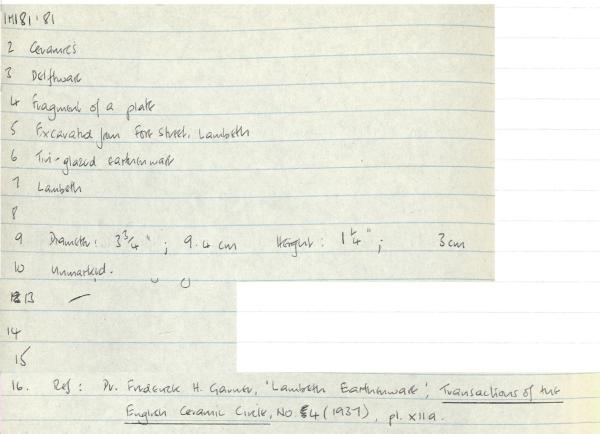 1M181'81
2 Ceramics
3 Delftware
4 Fragment of a plate
5 Excavated from Fore Street, Lambeth
6 Tin-glazed earthenware
7 Lambeth
8
9 Diameter: 3 3/4"; 9.4 cm Height: 1 1/4"; 3 cm
10 Unmarked.
13 —
14
15
16. Ref: Dr. Frederick H. Garner, 'Lambeth Earthenware', Transactions of the
English Ceramic Circle, No 4 (1937), pl. XIIa.